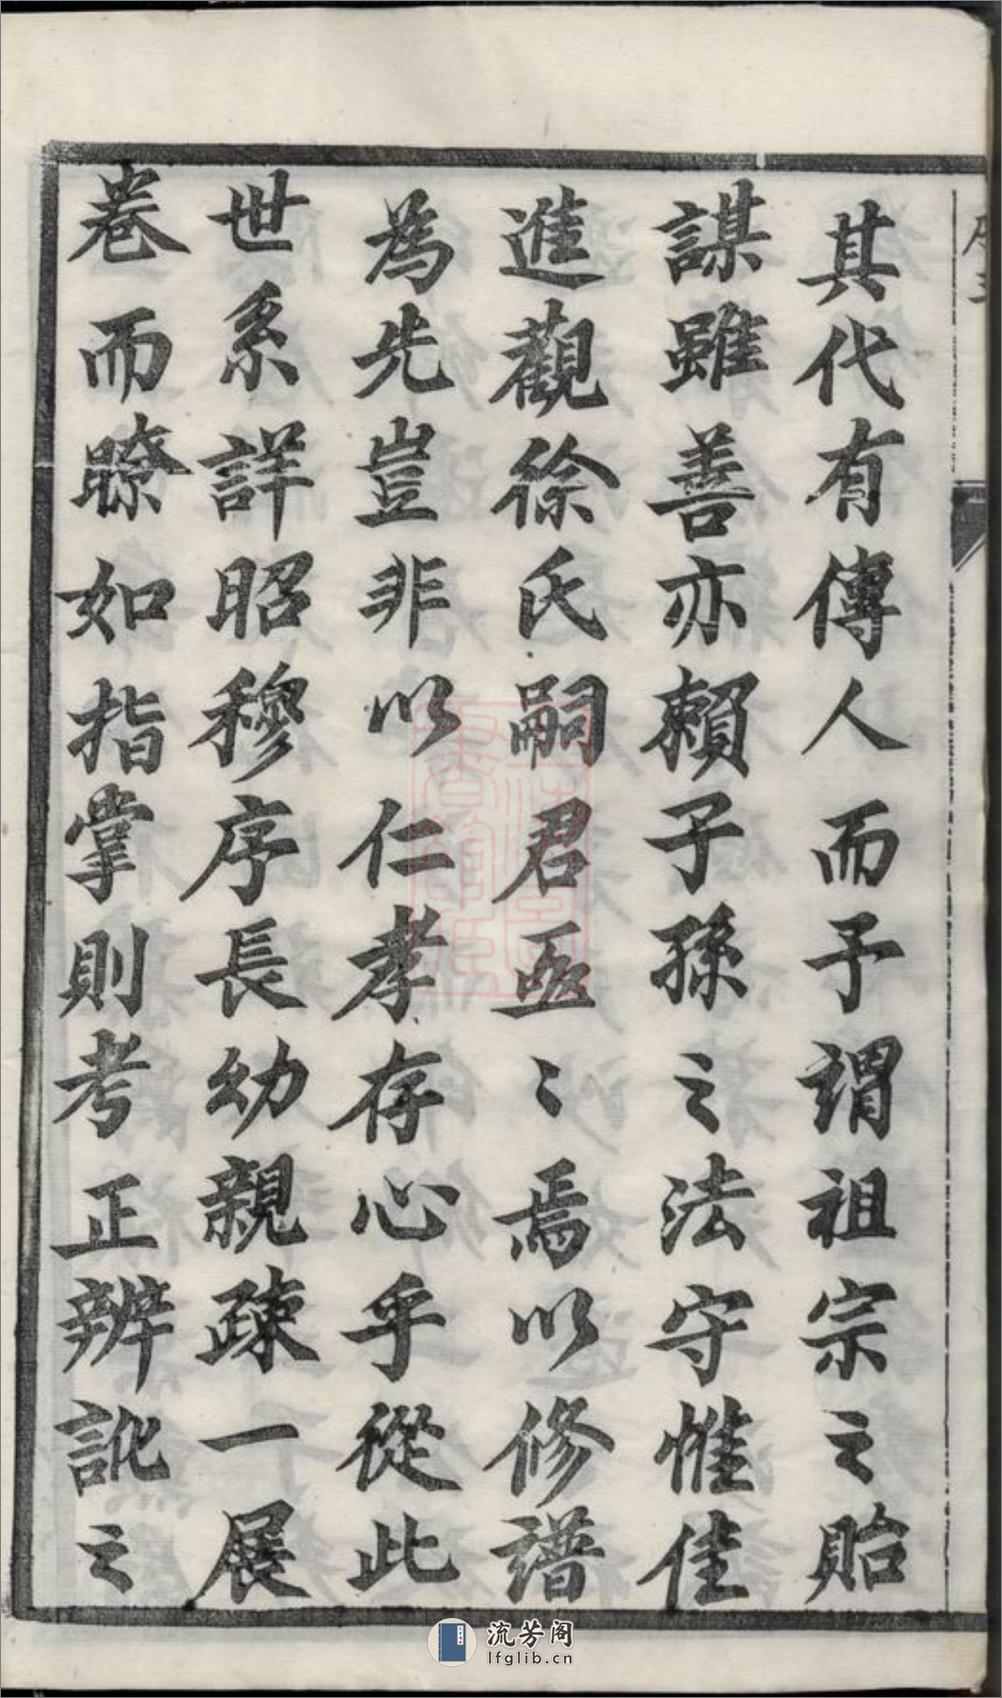 其代有傳人而予謂祖宗之貽
謀雖善亦賴子孫之法守惟佳
進觀徐氏嗣君亟〻焉以修譜
為先豈非以仁孝存心乎從此
世系詳昭穆序長幼親疎一展
卷而瞭如指掌則考正辨訛之
流芳阁
lfglib.cn